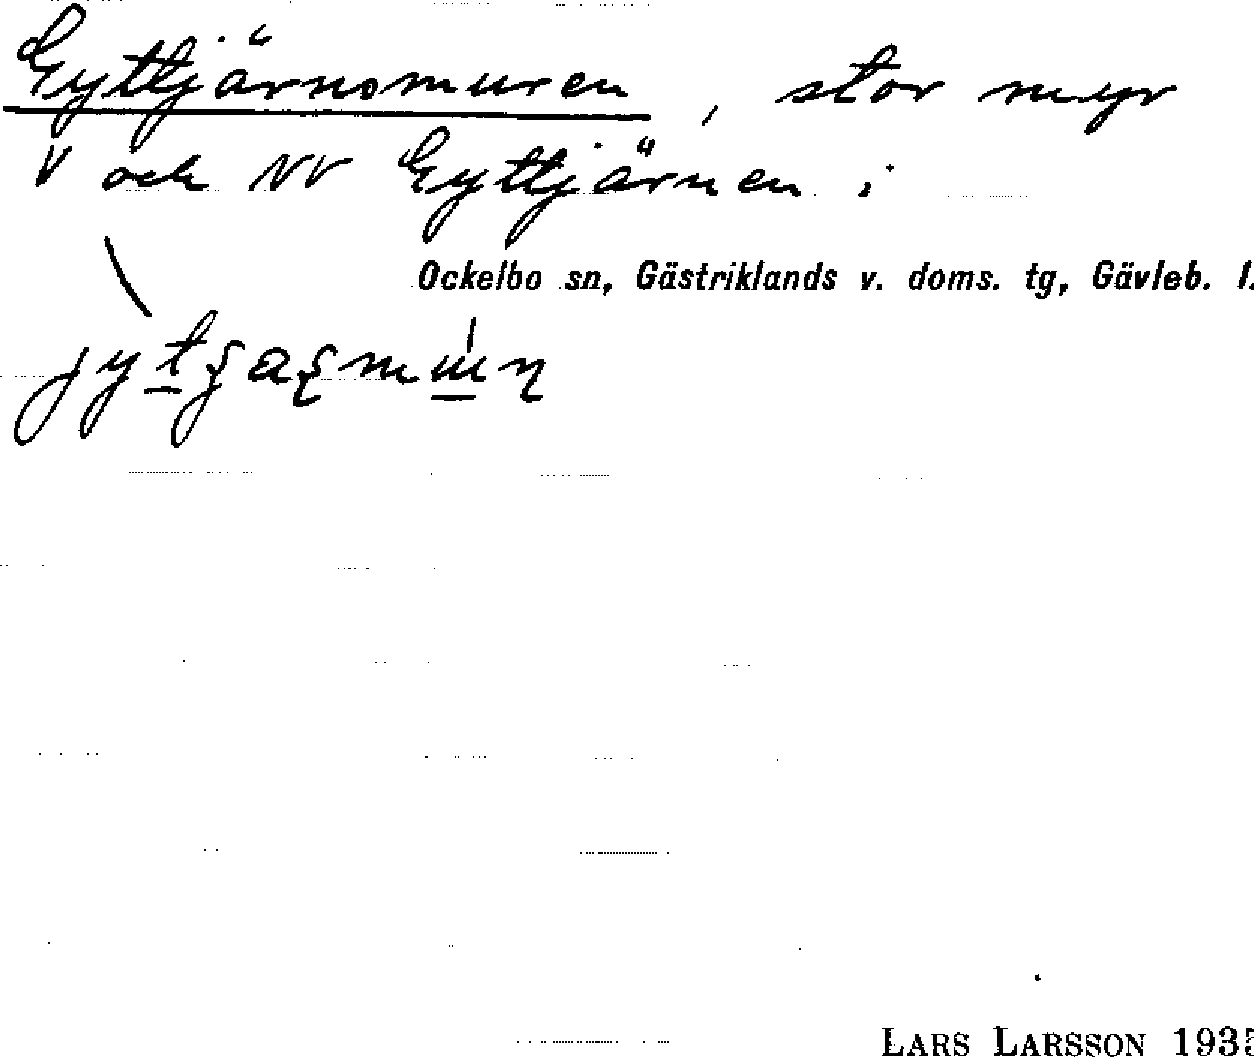 Gyttjärnsmuren, stor myr
V och NV Gyttjärnen i
Ockelbo sn, Gästriklands v. doms. tg, Gävleb. l.
LARS LARSSON 1935